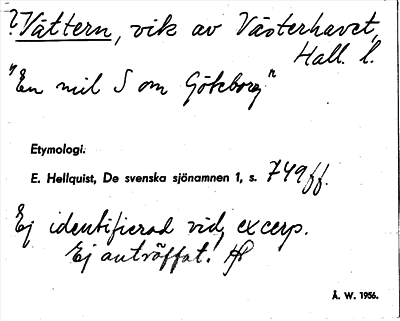 ? Vättern, vik av Västerhavet,
Hall. l.
"En mil S om Göteborg"
Etymologi.
E. Hellquist, De svenska sjönamnen 1, s. 749ff.
Ej identifierad vid excerp.
Ej anträffat!
Å. W. 1956.